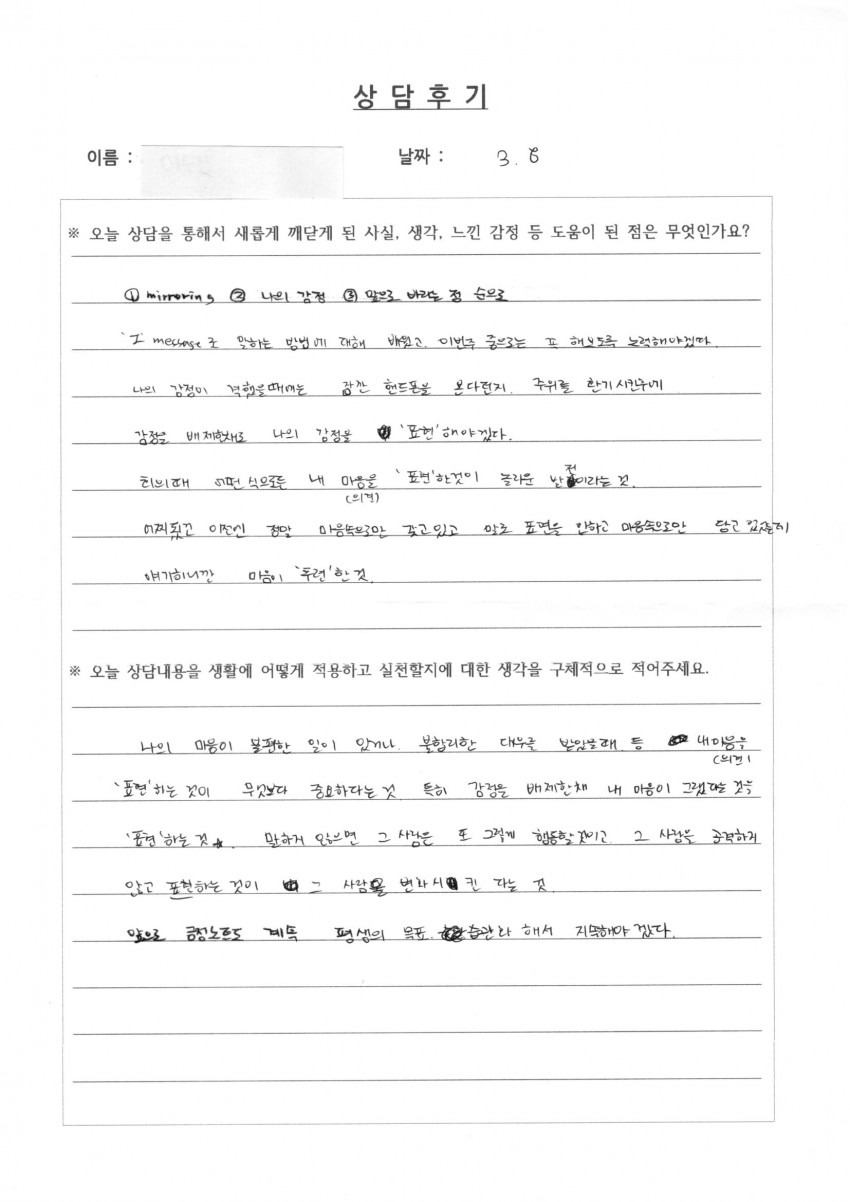 상 담 후 기
이름 :
날짜 : 3. 8
※ 오늘 상담을 통해서 새롭게 깨닫게 된 사실, 생각, 느낀 감정 등 도움이 된 점은 무엇인가요?
① mirroring ② 나의 감정 ③ 앞으로 바라는 점 순으로
'I' message로 말하는 방법에 대해 배웠고. 이번주 중으로는 꼭 해보도록 노력해야겠다.
나의 감정이 격했을때에는 잠깐 핸드폰을 본다던지. 주위를 환기시킨후에
감정을 배제한채로 나의 감정을 '표현'해야겠다.
회의때 어떤식으로든 내 마음을 '표현'한것이 놀라운 발전이라는 것.
(의견)
어찌됐건 이전엔 정말 마음속으로만 갖고있고 말로 표현을 안하고 마음속으로만 담고 있었는데
얘기하니깐 마음이 '후련'한 것.
※ 오늘 상담내용을 생활에 어떻게 적용하고 실천할지에 대한 생각을 구체적으로 적어주세요.
나의 마음이 불편한 일이 있거나. 불합리한 대우를 받았을때 등 내마음을
(의견)
'표현'하는 것이 무엇보다 중요하다는 것. 특히 감정을 배제한채 내 마음이 그랬다는 것을
'표현'하는 것. 말하지 않으면 그 사람은 또 그렇게 행동할것이고. 그 사람을 공격하지
않고 표현하는 것이 그 사람을 변화시킨다는 것.
앞으로 긍정노트도 계속 평생의 목표. 습관라 해서 지속해야겠다.